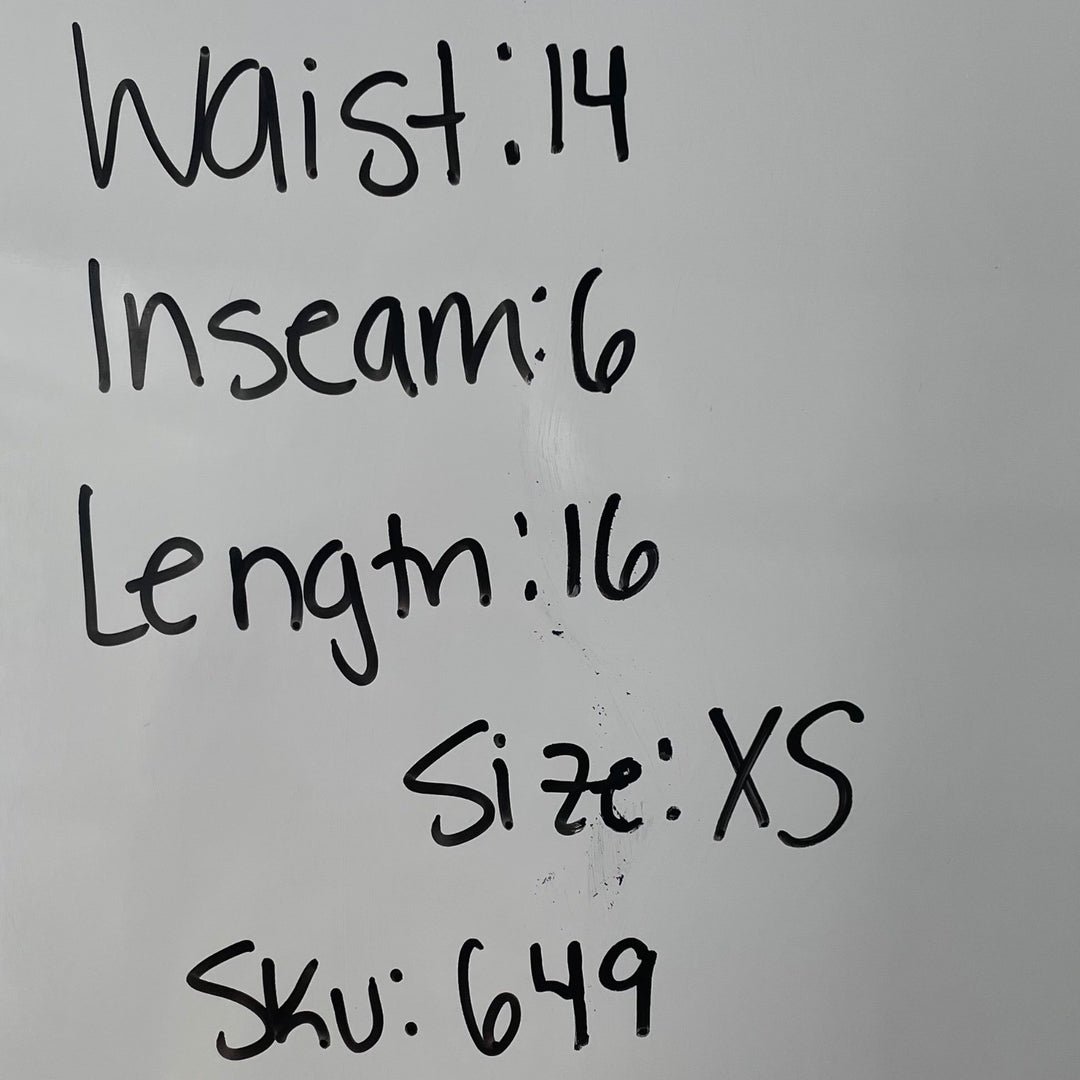 Waist: 14
Inseam: 6
Length: 16
Size: XS
SKU: 649